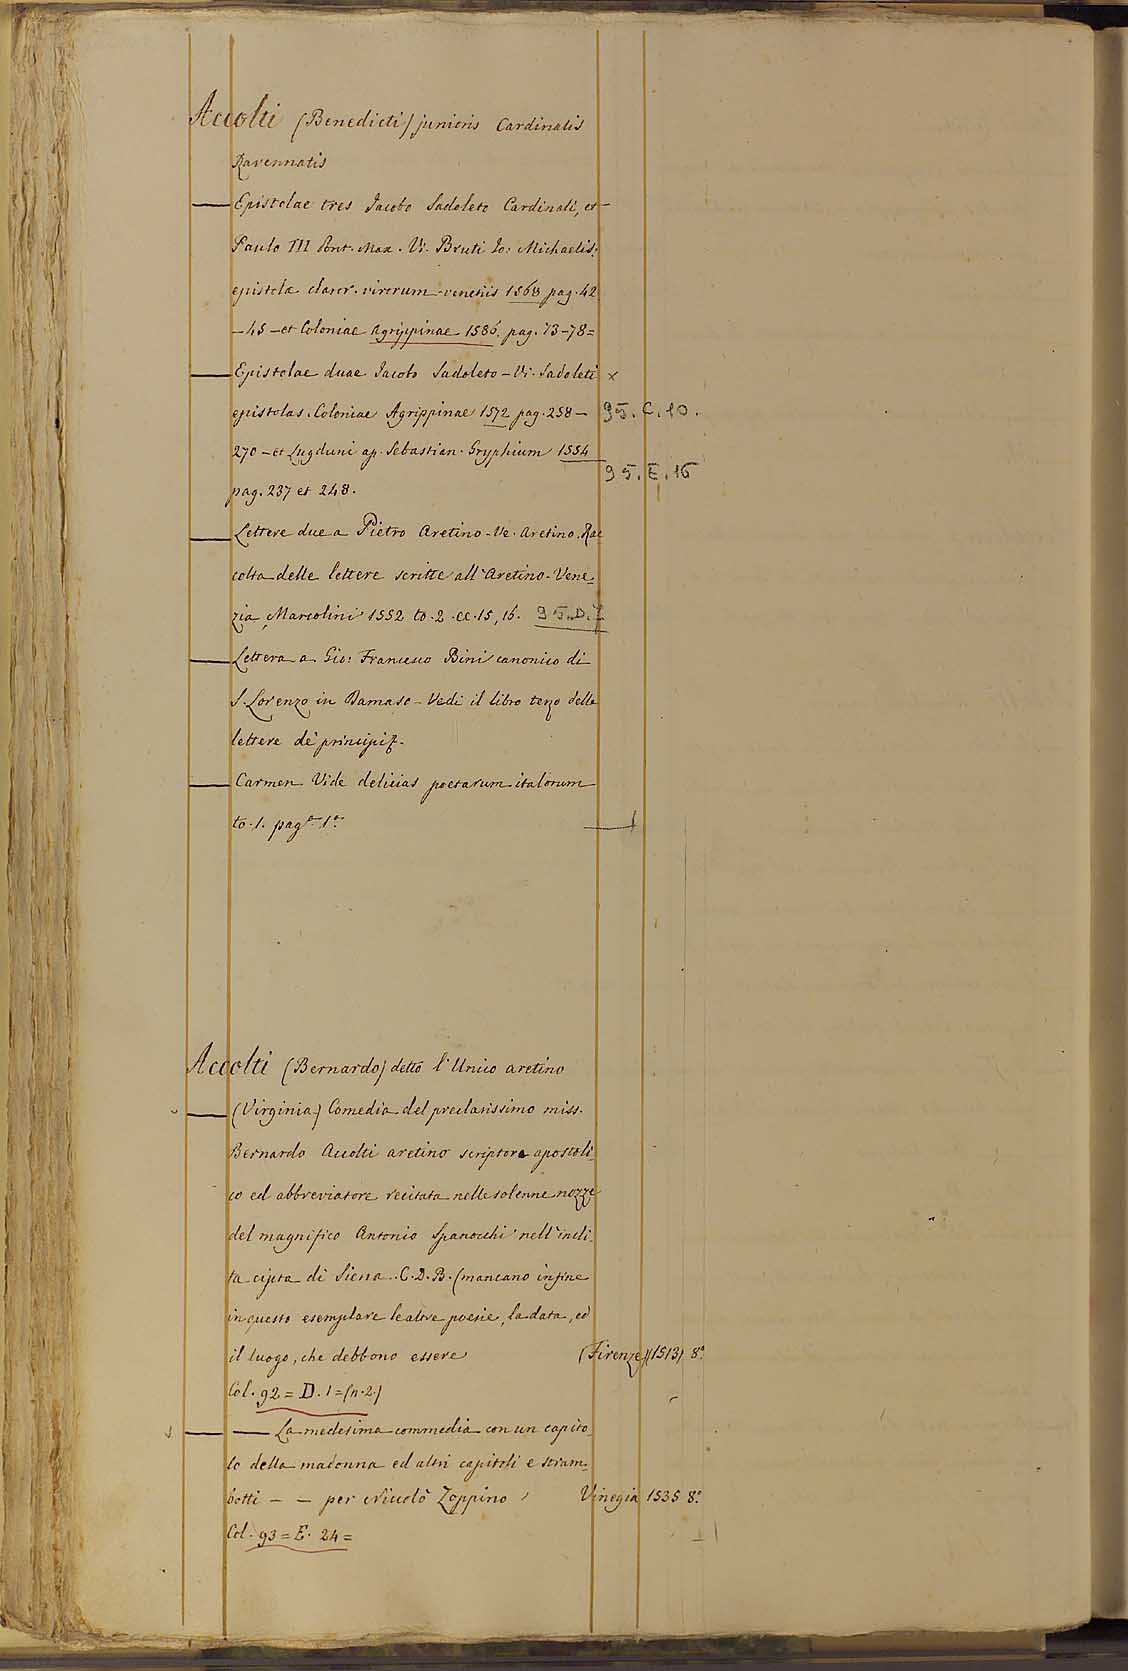 Accolti (Benedicti) junioris Cardinalis
Ravennatis
— Epistolae tres Jacobo Sadoleto Cardinali, et
Paulo III Pont. Max. Vi. Bruti Io: Michaelis:
epistolæ claror. virorum - venetiis 1568 pag. 42
- 45 - et Coloniae Agrippinae 1586. pag. 73-78=
— Epistolae duae Jacobo Sadoleto - Vi. Sadoleti x
epistolas. Coloniae Agrippinae 1572 pag. 258 - 95. C. 10.
270 - et Lugduni ap. Sebastian. Gryphium 1554
95. E. 16
pag. 237 et 248.
— Lettere due a Pietro Aretino - Ve. Aretino. Rac
colta delle lettere scritte all'Aretino - Vene=
zia, Marcolini 1552 to. 2. cc. 15, 16. 95. D. 7
— Lettera a Gio: Francesco Bini canonico di
S. Lorenzo in Damaso - Vedi il libro terzo delle
lettere de' principi f.
— Carmen Vide delicias poetarum italorum
to. 1. pag.ª 1.ª
Accolti (Bernardo) detto l'Unico aretino
— (Virginia) Comedia del preclarissimo miss.
Bernardo Accolti aretino scriptore apostoli=
co ed abbreviatore recitata nelle solenne nozze
del magnifico Antonio Spanocchi nell'incli=
ta cipta di Siena.. C. D. B. (mancano in fine
in questo esemplare le altre poesie, la data, ed
il luogo, che debbono essere (Firenze) (1513) 8.º
Col. 92 = D. 1 = (n. 2.)
— — La medesima commedia con un capito=
lo della madonna ed altri capitoli e stram=
botti - - per Nicolò Zoppino Vinegia 1535 8.º
Col. 93 = E. 24 =